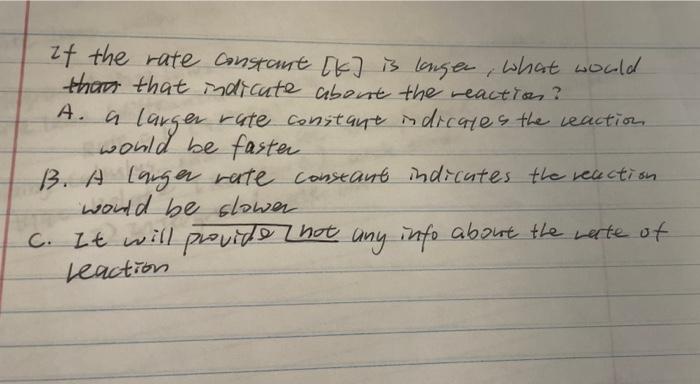 If the rate constant [k] is larger, what would
than that indicate about the reaction?
A. a larger rate constant indicates the reaction
would be faster
B. A larger rate constant indicates the reaction
would be slower
C. It will provide not any info about the rate of
reaction